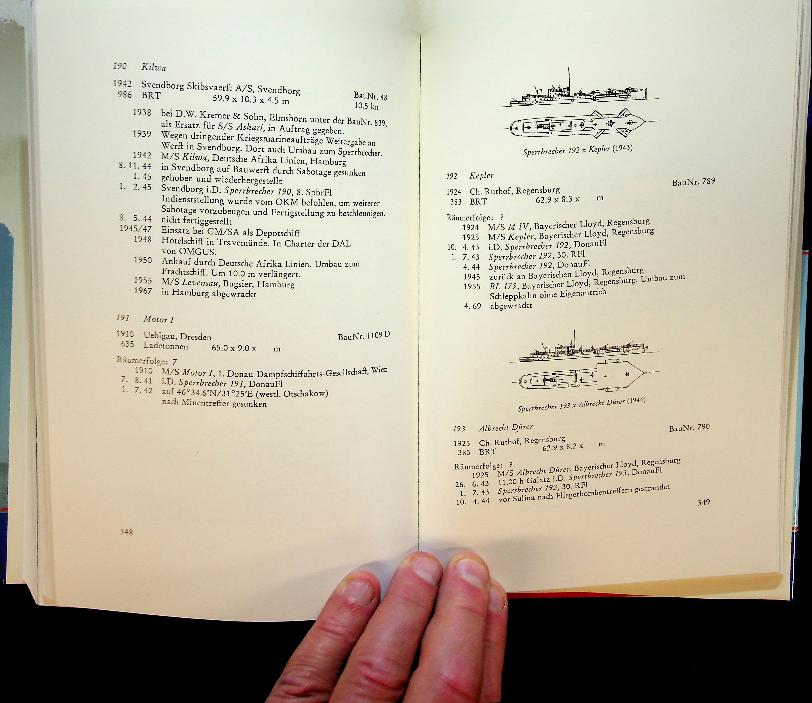 190 Kilwa
1942 Svendborg Skibsvaerft A/S, Svendborg BauNr. 48
986 BRT 59.9 x 10.3 x 4.5 m 10.5 kn
1938 bei D.W. Kremer & Sohn, Elmshorn unter der BauNr. 839,
als Ersatz für S/S Askari, in Auftrag gegeben.
1939 Wegen dringender Kriegsmarineaufträge Weitergabe an
Werft in Svendborg. Dort auch Umbau zum Sperrbrecher.
1942 M/S Kilwa, Deutsche Afrika Linien, Hamburg
8. 11. 44 in Svendborg auf Bauwerft durch Sabotage gesunken
1. 45 gehoben und wiederhergestellt
1. 2. 45 Svendborg i.D. Sperrbrecher 190, 8. SpbrFl
Indienststellung wurde vom OKM befohlen, um weiterer
Sabotage vorzubeugen und Fertigstellung zu beschleunigen.
8. 5. 44 nicht fertiggestellt
1945/47 Einsatz bei GM/SA als Depotschiff
1948 Hotelschiff in Travemünde. In Charter der DAL
von OMGUS.
1950 Ankauf durch Deutsche Afrika Linien. Umbau zum
Frachtschiff. Um 10.0 m verlängert.
1955 M/S Levensau, Bugsier, Hamburg
1967 in Hamburg abgewrackt
191 Motor I
1910 Uebigau, Dresden BauNr. 1109 D
635 Ladetonnen 65.0 x 9.0 x m
Räumerfolge: 7
1910 M/S Motor I, 1. Donau-Dampfschiffahrts-Gesellschaft, Wien
7. 8. 41 i.D. Sperrbrecher 191, DonauFl
1. 7. 42 auf 46°34.6'N/31°25'E (westl. Otschakow)
nach Minentreffer gesunken
348
Sperrbrecher 192 = Kepler (1943)
192 Kepler
1924 Ch. Ruthof, Regensburg BauNr. 789
383 BRT 62.9 x 8.3 x m
Räumerfolge: ?
1924 M/S M IV, Bayerischer Lloyd, Regensburg
1925 M/S Kepler, Bayerischer Lloyd, Regensburg
10. 4. 43 i.D. Sperrbrecher 192, DonauFl
1. 7. 43 Sperrbrecher 192, 30. RFl
4. 44 Sperrbrecher 192, DonauFl
1945 zurück an Bayerischen Lloyd, Regensburg
1955 BL 175, Bayerischer Lloyd, Regensburg. Umbau zum
Schleppkahn ohne Eigenantrieb
4. 69 abgewrackt
Sperrbrecher 193 = Albrecht Dürer (1944)
193 Albrecht Dürer
1925 Ch. Ruthof, Regensburg BauNr. 790
385 BRT 62.9 x 8.2 x m
Räumerfolge: ?
1925 M/S Albrecht Dürer, Bayerischer Lloyd, Regensburg
26. 6. 43 11.00 h Galatz i.D. Sperrbrecher 193, DonauFl
1. 7. 43 Sperrbrecher 193, 30. RFl
10. 4. 44 vor Sulina nach Fliegerbombentreffern gestrandet
349